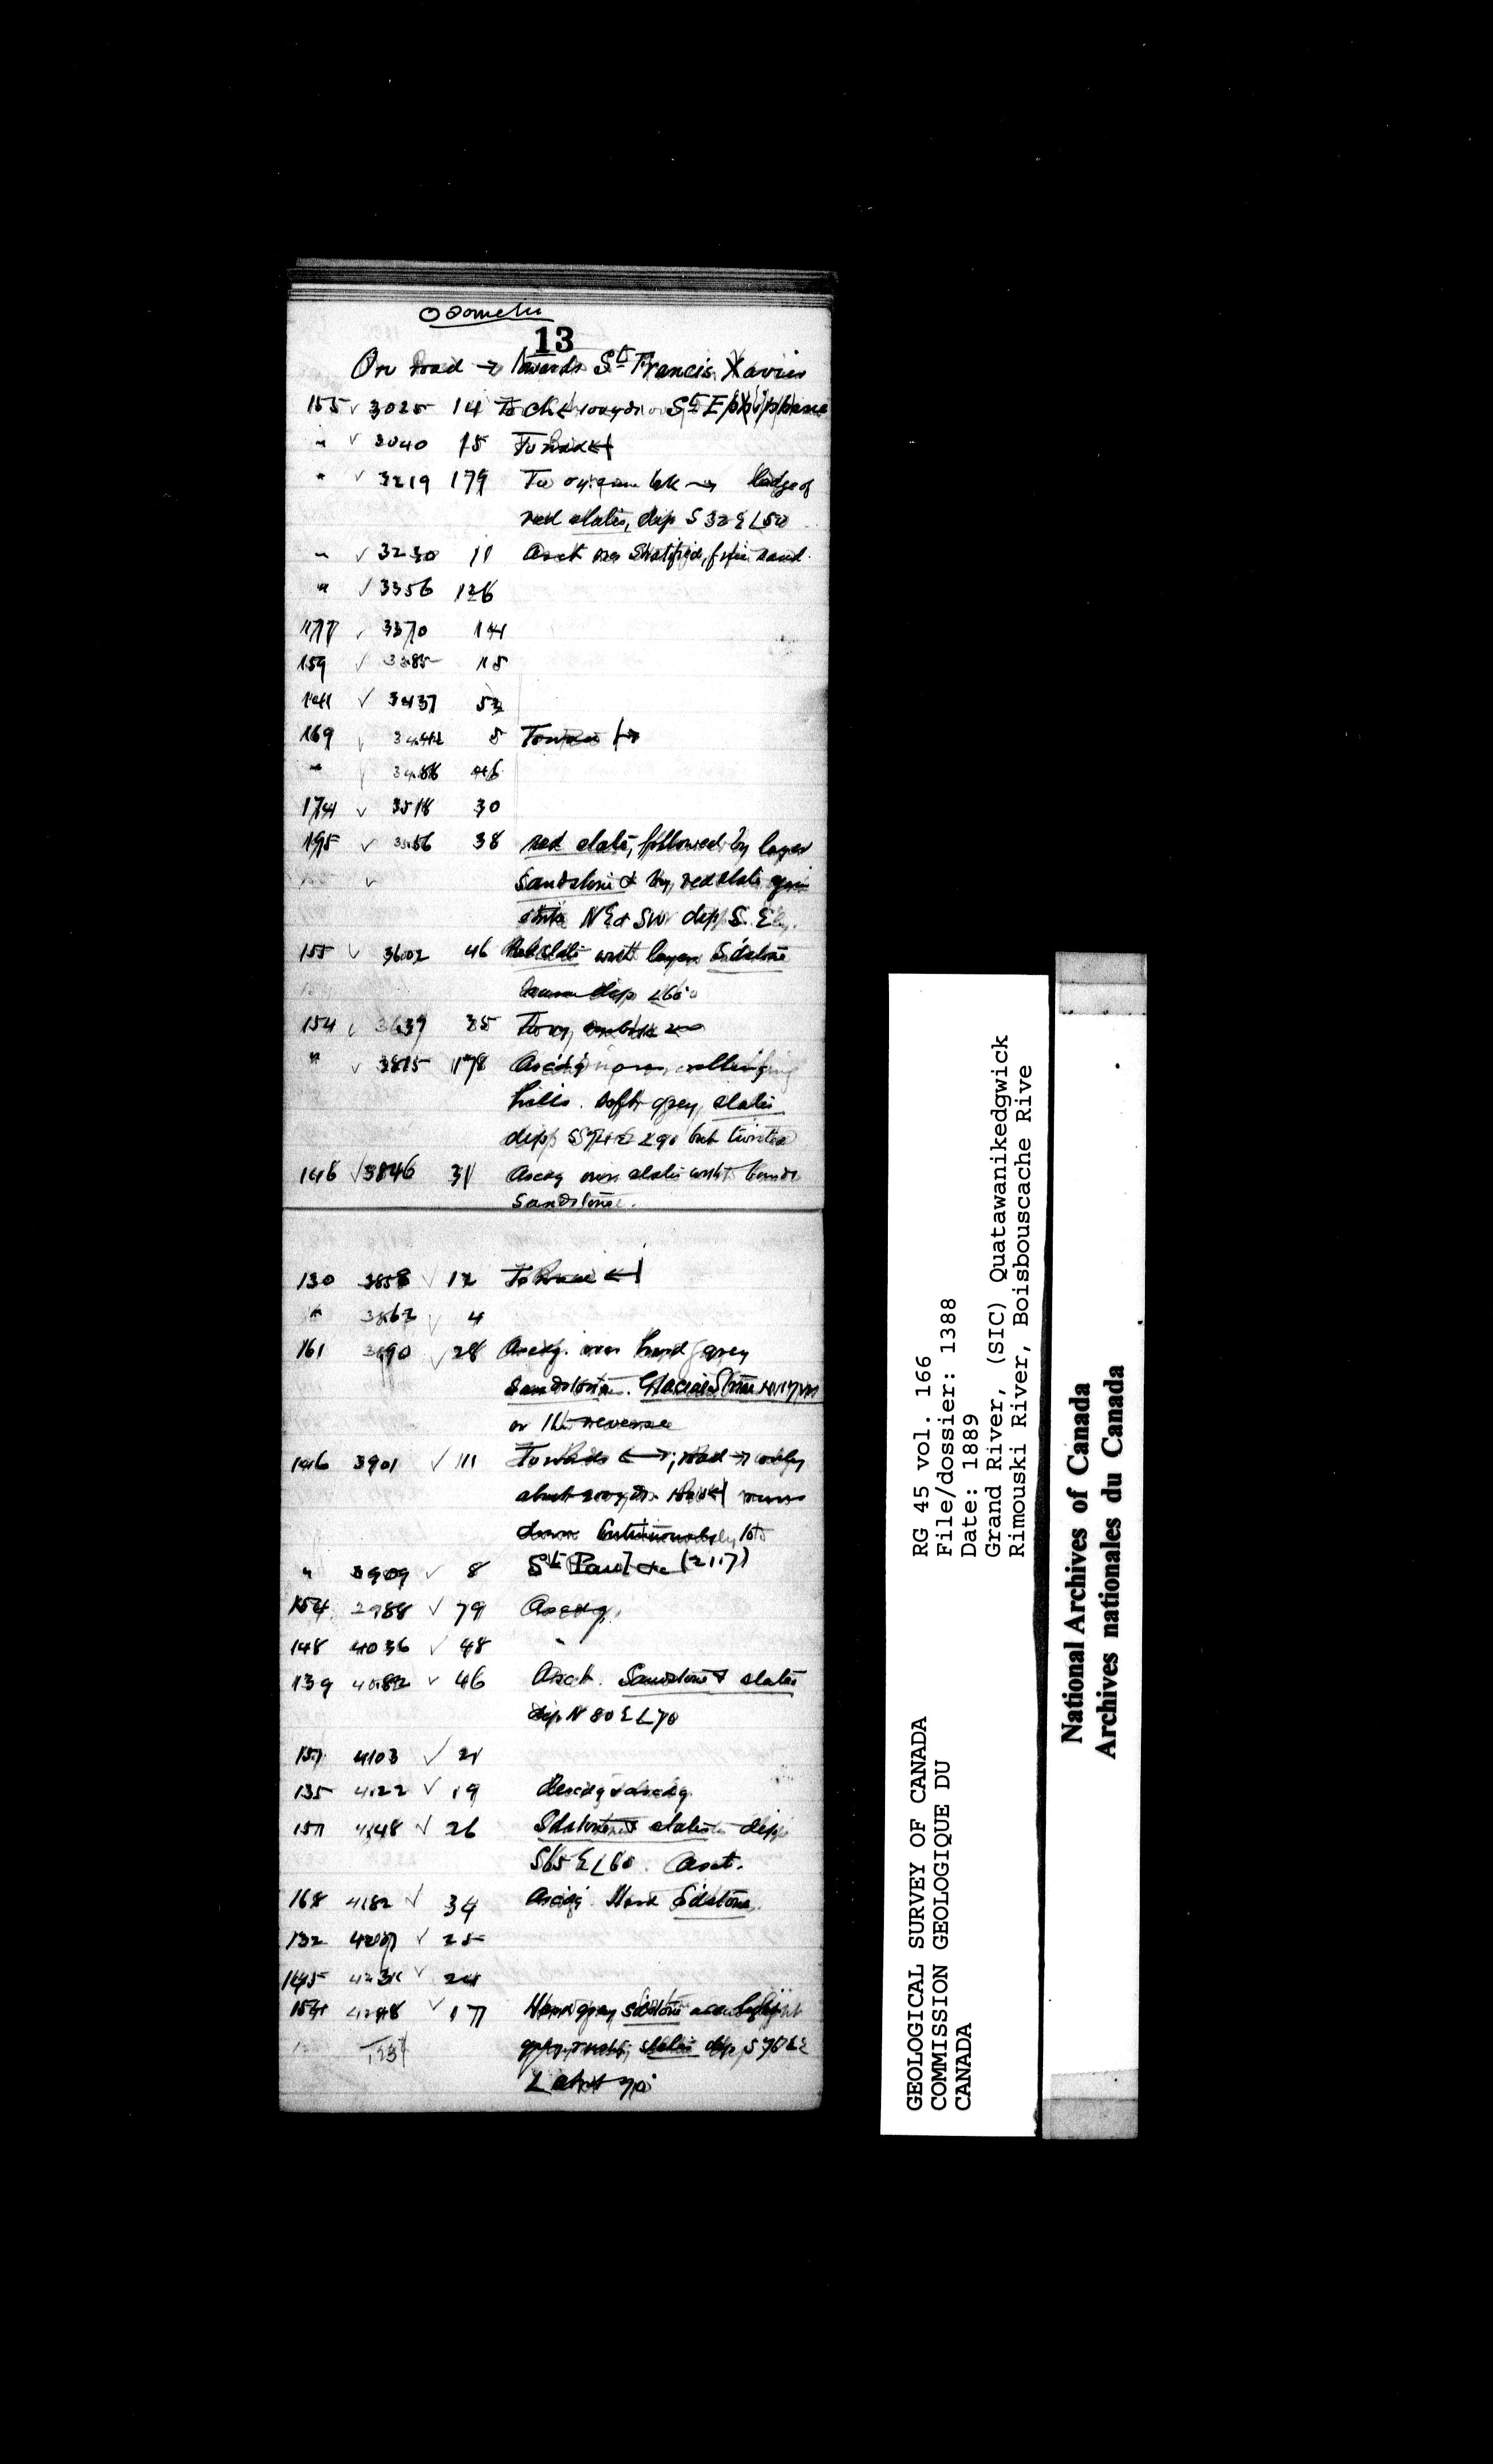 Odometer
13
On Road → towards St Francis Xavier
155 ✓ 3025 14 To ch ← 100 yds St Epiphane
" ✓ 3040 15 To road ←|
" ✓ 3219 179 To → ledge of
red slates, dip S 32 E ∠50
" ✓ 3230 11 Asct over stratified, fine sand
" ✓ 3356 126
177 ✓ 3370 14
159 ✓ 3385 15
✓ 3437 52
169 ✓ 3442 5 To road |→
" 3488 46
174 ✓ 3518 30
195 ✓ 3556 38 red slate, followed by layer
✓ Sandstone & by red slate again
strike NE & SW dip S. E
155 ✓ 3602 46 Red slate with layers S'dstone
dip ∠60°
154 3637 35
" ✓ 3815 178 over rolling
hills. soft grey slates
dip ∠90 but twisted
146 ✓ 3846 31 Ascdg over slates with bands
Sandstone.
130 3858 ✓ 12 To Road ←|
" 3862 ✓ 4
161 3890 ✓ 28 Ascdg. over hard grey
sandstone. Glacial Striae
or the reverse
146 3901 ✓ 11 To Roads ←→; road → only
about 200 yds. Road ←| runs
down continuously to
" 3909 ✓ 8 St Paul de (2117)
154 2988 ✓ 79 Ascdg.
148 4036 ✓ 48 "
139 4082 ✓ 46 Asct. Sandstone & slates
dip N 80 E ∠70
151 4103 ✓ 21
135 4122 ✓ 19 descdg & ascdg.
4148 ✓ 26 Sdstone & slates dip
S65 E ∠60. Asct.
168 4182 ✓ 34 Ascdg. Hard S'dstone.
132 4207 ✓ 25
145 4231 ✓ 24
154 4248 ✓ 17 Hard grey sdstone
slates dip
∠ about 70°
RG 45 vol. 166
File/dossier: 1388
Date: 1889
Grand River, (SIC) Quatawanikedgwick
Rimouski River, Boisbouscache Rive
GEOLOGICAL SURVEY OF CANADA
COMMISSION GEOLOGIQUE DU
CANADA
National Archives of Canada
Archives nationales du Canada